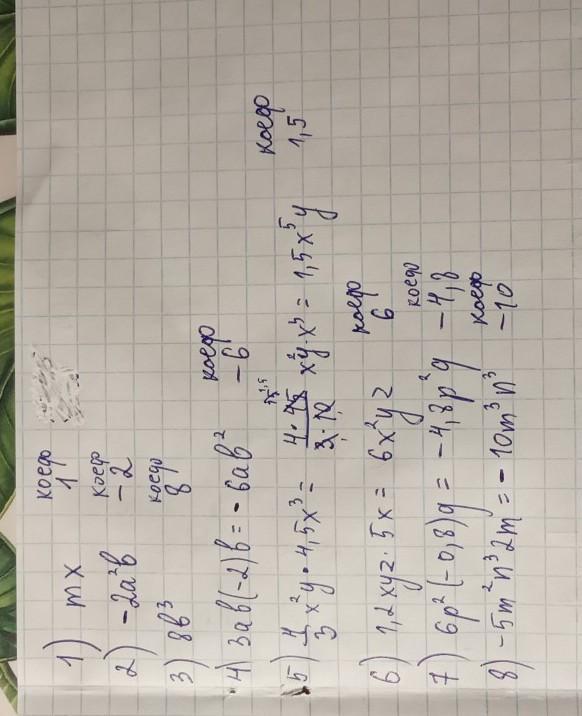 1) mx коеф 1
2) -2a²b коеф -2
3) 8b³ коеф 8
4) 3ab(-2)b = -6ab² коеф -6
5) 4/3 x²y · 4,5x³ = x²y·x³ = 1,5x⁵y коеф 1,5
6) 1,2xyz · 5x = 6x²yz коеф 6
7) 6p²(-0,8)q = -4,8p²q коеф -4,8
8) -5m²n³2m = -10m³n³ коеф -10